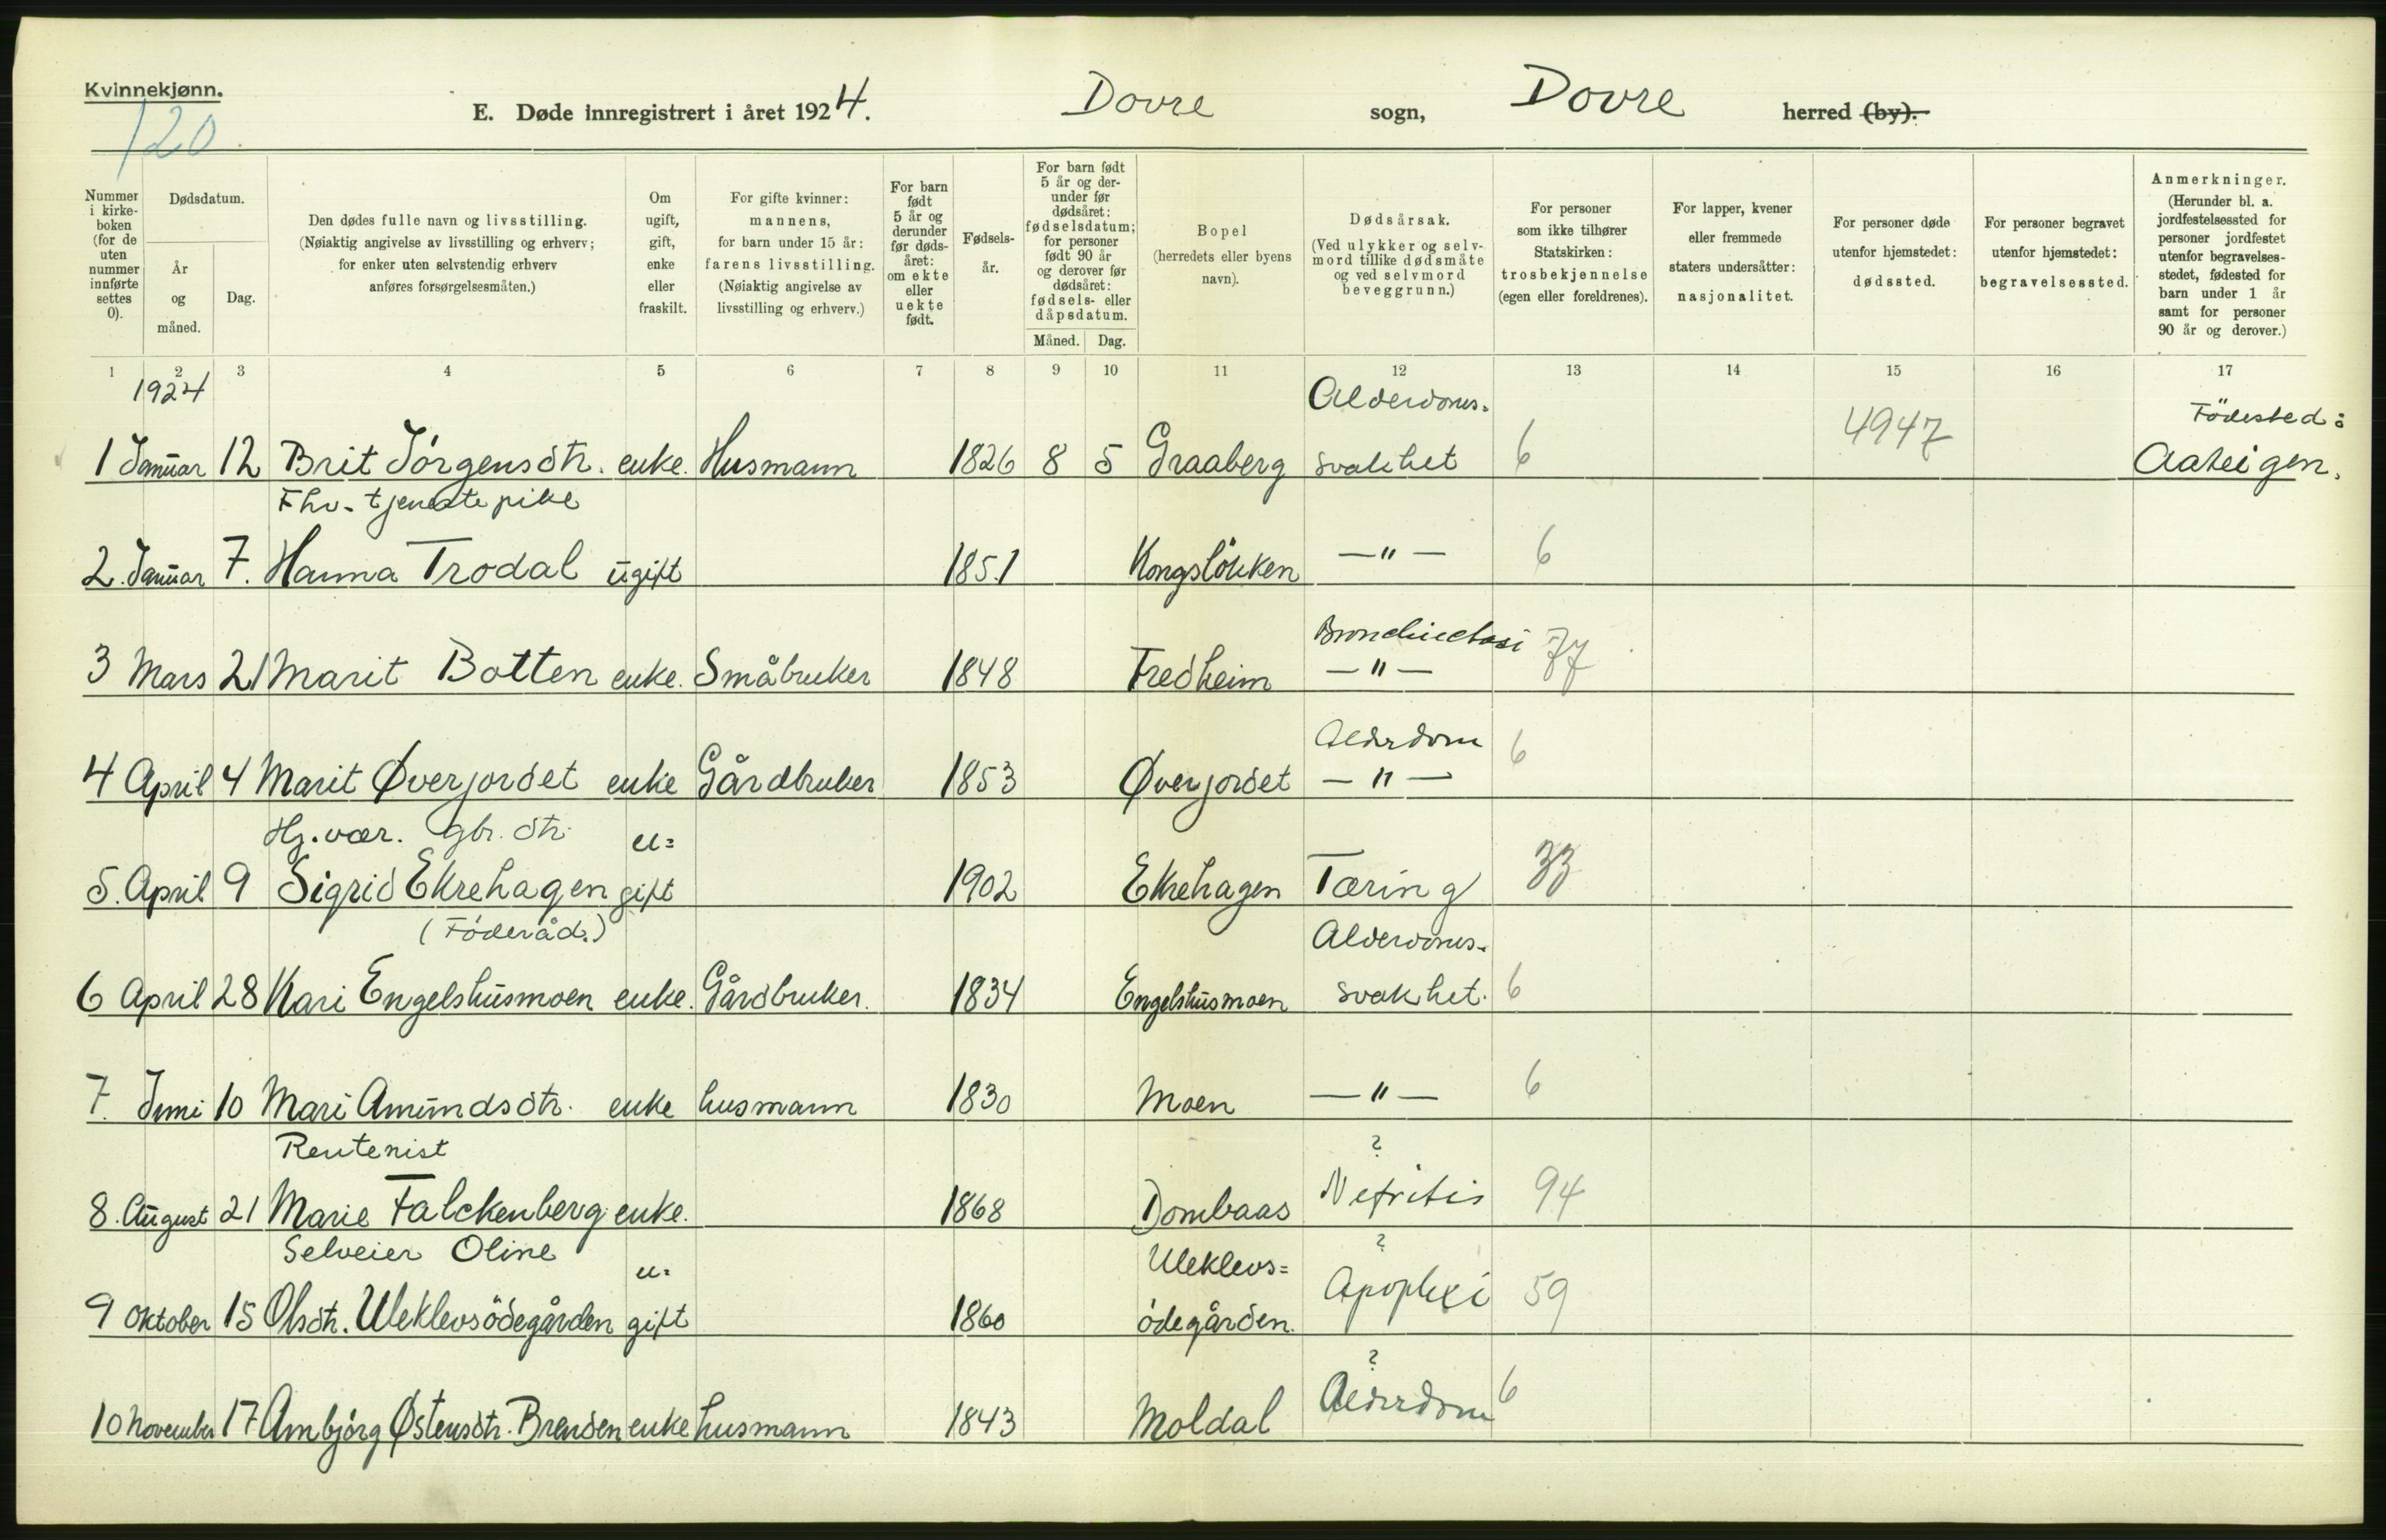 Kvinnekjønn.
120
E. Døde innregistrert i året 1924. Dovre sogn, Dovre herred (by).
Nummer i kirkeboken (for de uten nummer innførte settes 0).
Dødsdatum.
År og måned.
Dag.
Den dødes fulle navn og livsstilling. (Nøiaktig angivelse av livsstilling og erhverv; for enker uten selvstendig erhverv anføres forsørgelsesmåten.)
Om ugift, gift, enke eller fraskilt.
For gifte kvinner: mannens, for barn under 15 år: farens livsstilling. (Nøiaktig angivelse av livsstilling og erhverv.)
For barn født 5 år og derunder før døds-året: om ekte eller uekte født.
Fødsels-år.
For barn født 5 år og der-under før dødsåret: fødselsdatum; for personer født 90 år og derover før dødsåret: fødsels- eller dåpsdatum.
Måned. Dag.
Bopel (herredets eller byens navn).
Dødsårsak. (Ved ulykker og selv-mord tillike dødsmåte og ved selvmord beveggrunn.)
For personer som ikke tilhører Statskirken: trosbekjennelse (egen eller foreldrenes).
For lapper, kvener eller fremmede staters undersåtter: nasjonalitet.
For personer døde utenfor hjemstedet: dødssted.
For personer begravet utenfor hjemstedet: begravelsessted.
Anmerkninger. (Herunder bl. a. jordfestelsessted for personer jordfestet utenfor begravelses-stedet, fødested for barn under 1 år samt for personer 90 år og derover.)
1 2 3 4 5 6 7 8 9 10 11 12 13 14 15 16 17
1924 Alderdoms- Födested:
1 Januar 12 Brit Jörgensdtr. enke. Husmann 1826 8 5 Graaberg svakhet 6 4947
Fhv. tjenestepike
2. Januar 7. Hanna Trodal ugift 1851 Kongslökken —"— 6
Bronchiectasi
3 Mars 21 Marit Botten enke. Småbruker 1848 Fredheim —"— 77
Alderdom
4 April 4 Marit Øverjordet enke Gårdbruker 1853 Øverjordet —"— 6
Hj.vær. gbr. dtr. u=
5. April 9 Sigrid Ekrehagen gift 1902 Ekrehagen Tæring 33
(Föderåd.) Alderdoms-
6 April 28 Kari Engelshusmoen enke. Gårdbruker. 1834 Engelshusmoen svakhet. 6
7. Juni 10 Mari Amundsdtr. enke husmann 1830 Moen —"— 6
Rentenist ?
8. August 21 Marie Falckenberg enke. 1868 Dombaas Nefritis 94
Selveier Oline u- Uleklevs= ?
9 oktober 15 Olsdtr. Uleklevsödegården gift 1860 ödegården. Apoplexi 59
?
10 November 17 Ambjörg Østensdtr. Brenden enke husmann 1843 Moldal Alderdom 6